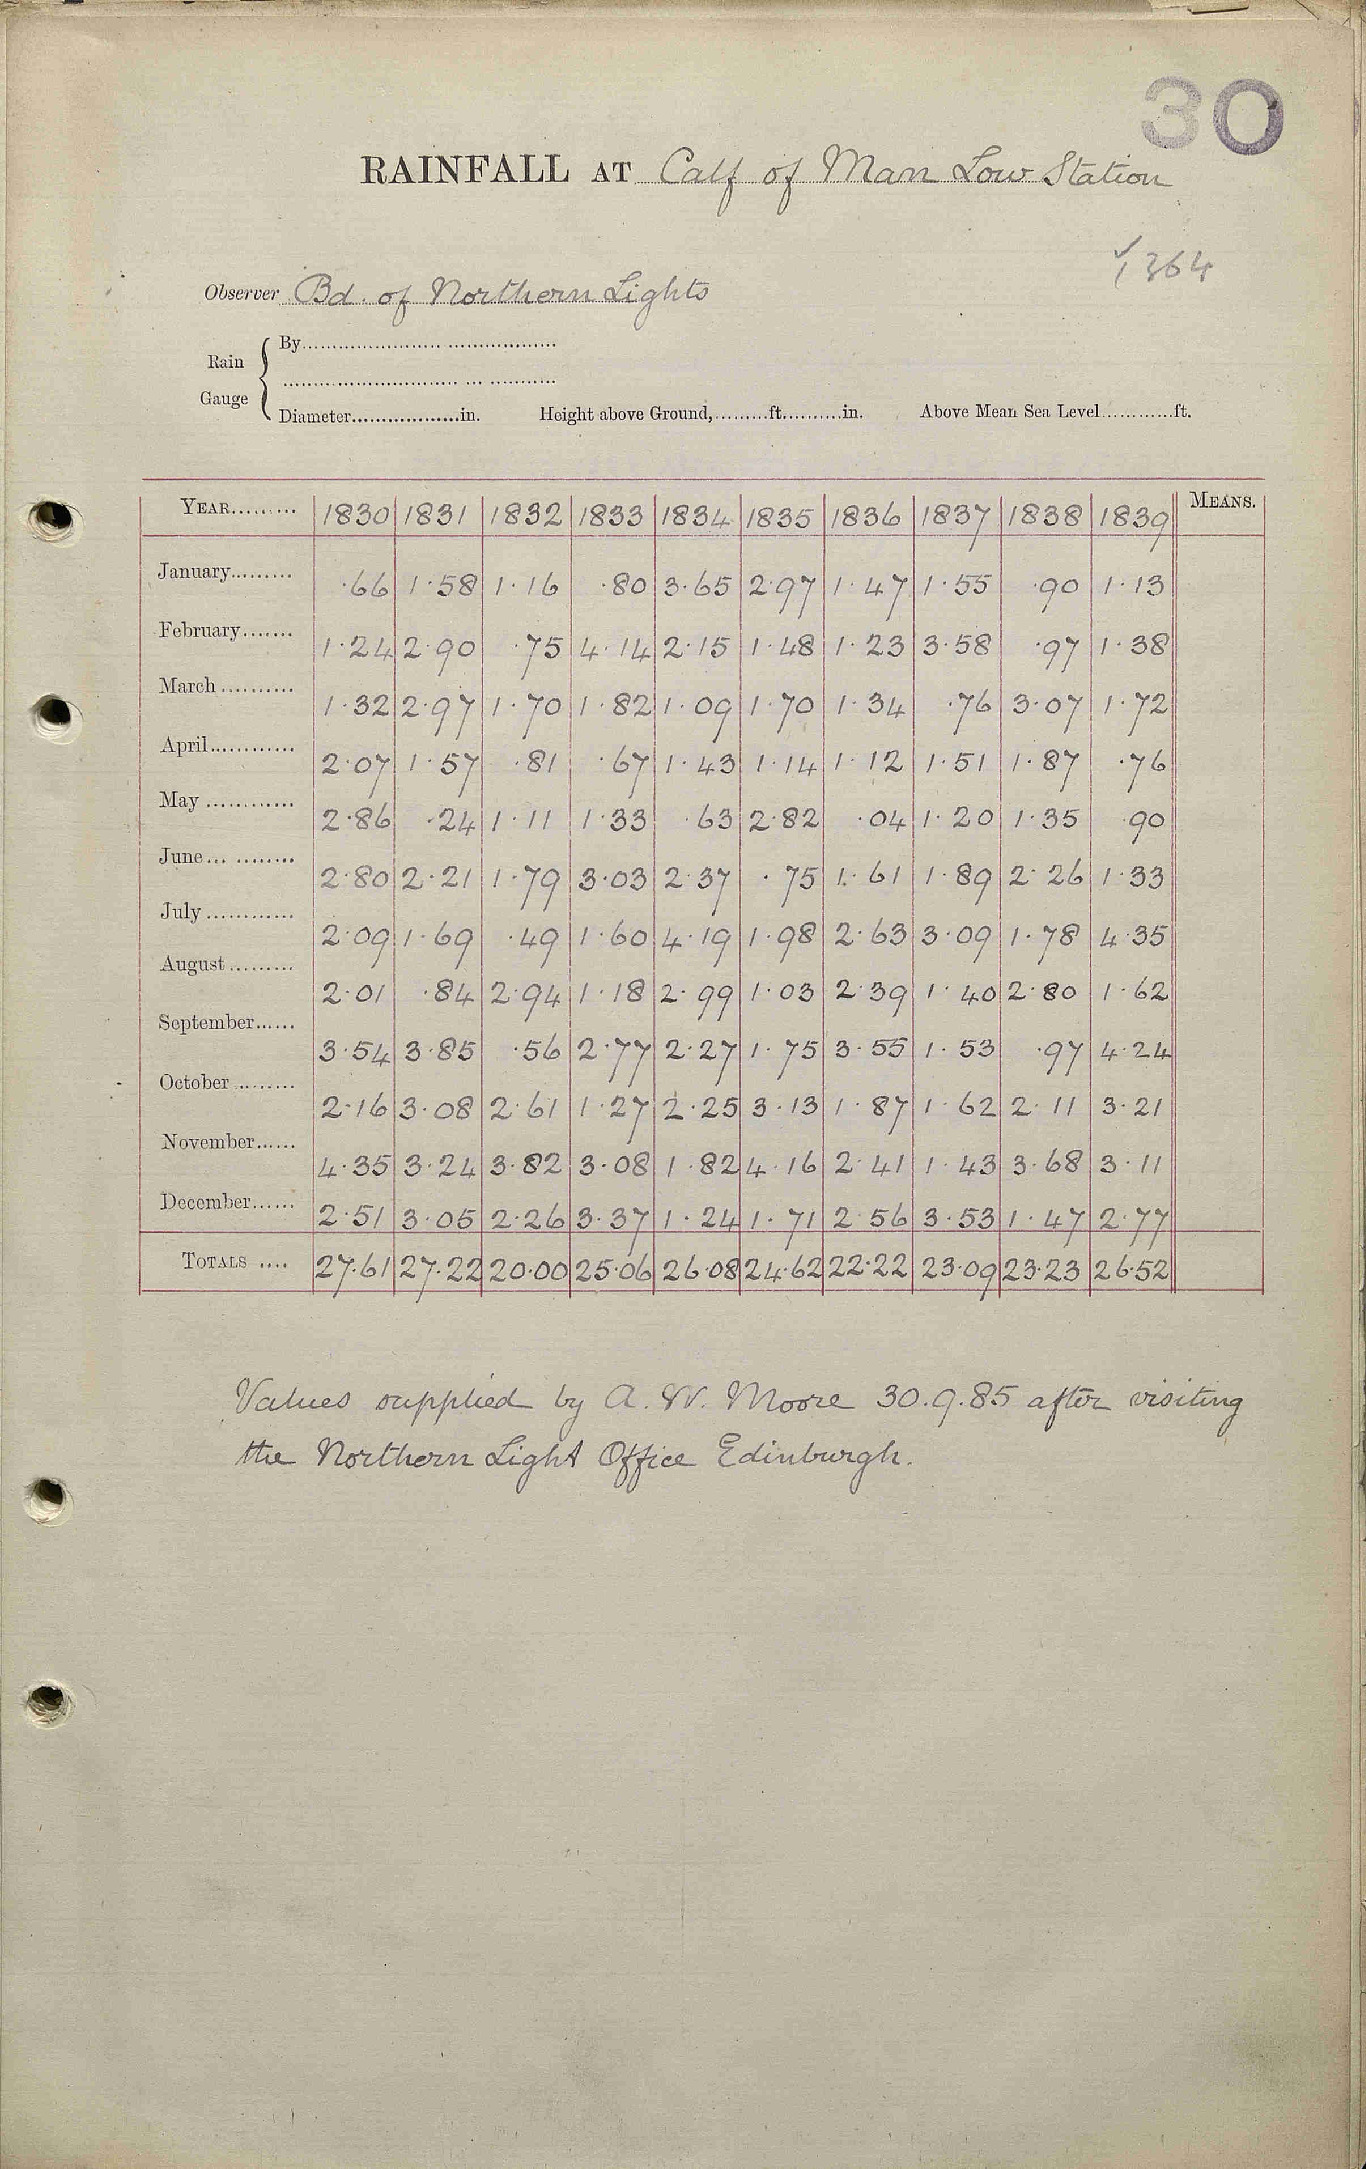 30
RAINFALL AT Calf of Man Low Station
√1364
Observer Bd. of Northern Lights
Rain Gauge { By
Diameter in. Height above Ground, ft. in. Above Mean Sea Level ft.
YEAR 1830 1831 1832 1833 1834 1835 1836 1837 1838 1839 MEANS.
January ·66 1·58 1·16 ·80 3·65 2·97 1·47 1·55 ·90 1·13
February 1·24 2·90 ·75 4·14 2·15 1·48 1·23 3·58 ·97 1·38
March 1·32 2·97 1·70 1·82 1·09 1·70 1·34 ·76 3·07 1·72
April 2·07 1·57 ·81 ·67 1·43 1·14 1·12 1·51 1·87 ·76
May 2·86 ·24 1·11 1·33 ·63 2·82 ·04 1·20 1·35 ·90
June 2·80 2·21 1·79 3·03 2·37 ·75 1·61 1·89 2·26 1·33
July 2·09 1·69 ·49 1·60 4·19 1·98 2·63 3·09 1·78 4·35
August 2·01 ·84 2·94 1·18 2·99 1·03 2·39 1·40 2·80 1·62
September 3·54 3·85 ·56 2·77 2·27 1·75 3·55 1·53 ·97 4·24
October 2·16 3·08 2·61 1·27 2·25 3·13 1·87 1·62 2·11 3·21
November 4·35 3·24 3·82 3·08 1·82 4·16 2·41 1·43 3·68 3·11
December 2·51 3·05 2·26 3·37 1·24 1·71 2·56 3·53 1·47 2·77
TOTALS 27·61 27·22 20·00 25·06 26·08 24·62 22·22 23·09 23·23 26·52
Values supplied by A. W. Moore 30.9.85 after visiting
the Northern Light Office Edinburgh.